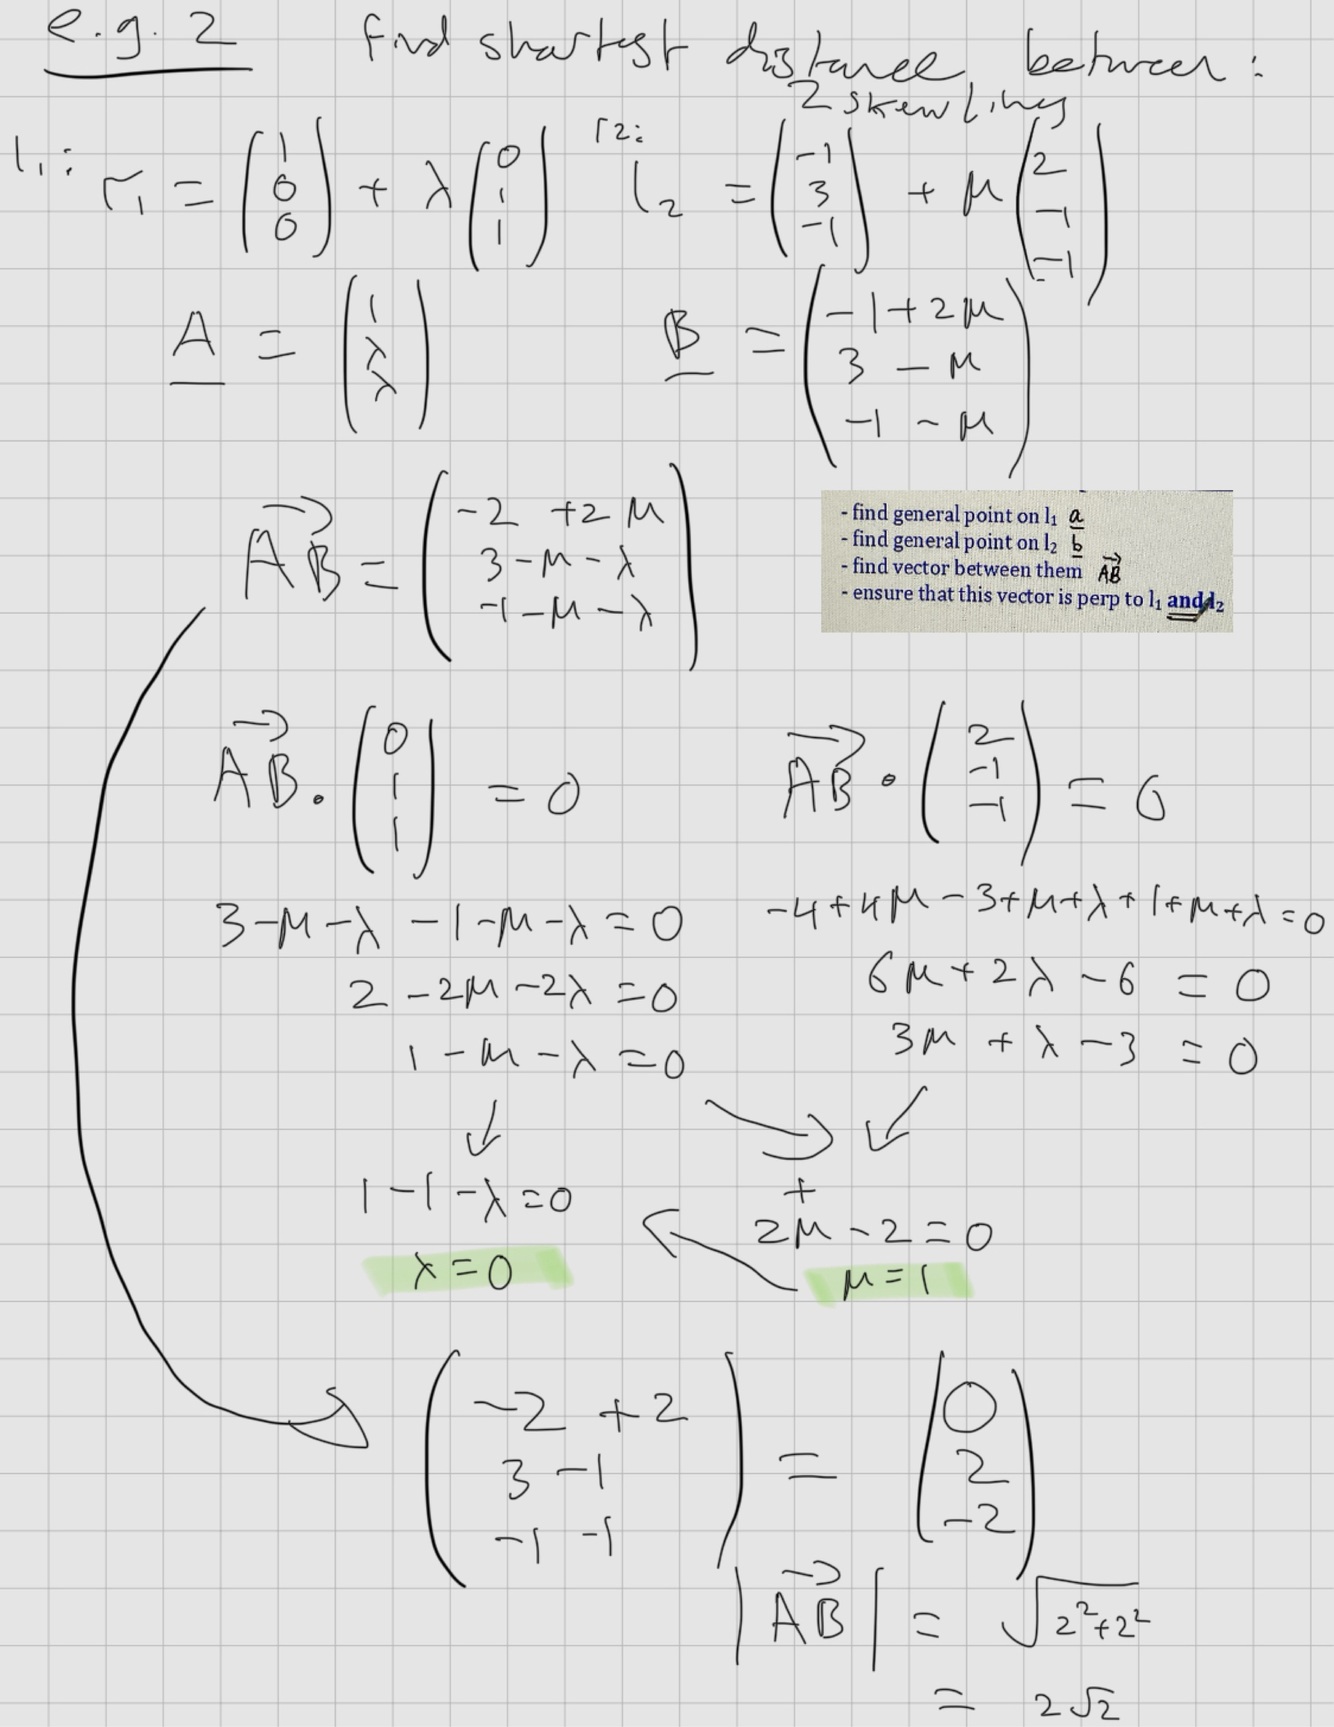 e.g. 2 find shortest distance between:
2 skew lines
l₁: r₁ = (1 0 0) + λ(0 1 1) r2: l₂ = (-1 3 -1) + μ(2 -1 -1)
A = (1 λ λ) B = (-1+2μ 3-μ -1-μ)
AB = (-2 +2μ 3-μ-λ -1-μ-λ)
- find general point on l₁ a
- find general point on l₂ b
- find vector between them AB
- ensure that this vector is perp to l₁ and l₂
AB . (0 1 1) = 0 AB . (2 -1 -1) = 0
3-μ-λ-1-μ-λ=0 -4+4μ-3+μ+λ+1+μ+λ=0
2-2μ-2λ=0 6μ+2λ-6=0
1-μ-λ=0 3μ+λ-3=0
+
1-1-λ=0 2μ-2=0
λ=0 μ=1
(-2+2 3-1 -1-1) = (0 2 -2)
|AB| = √2²+2²
= 2√2